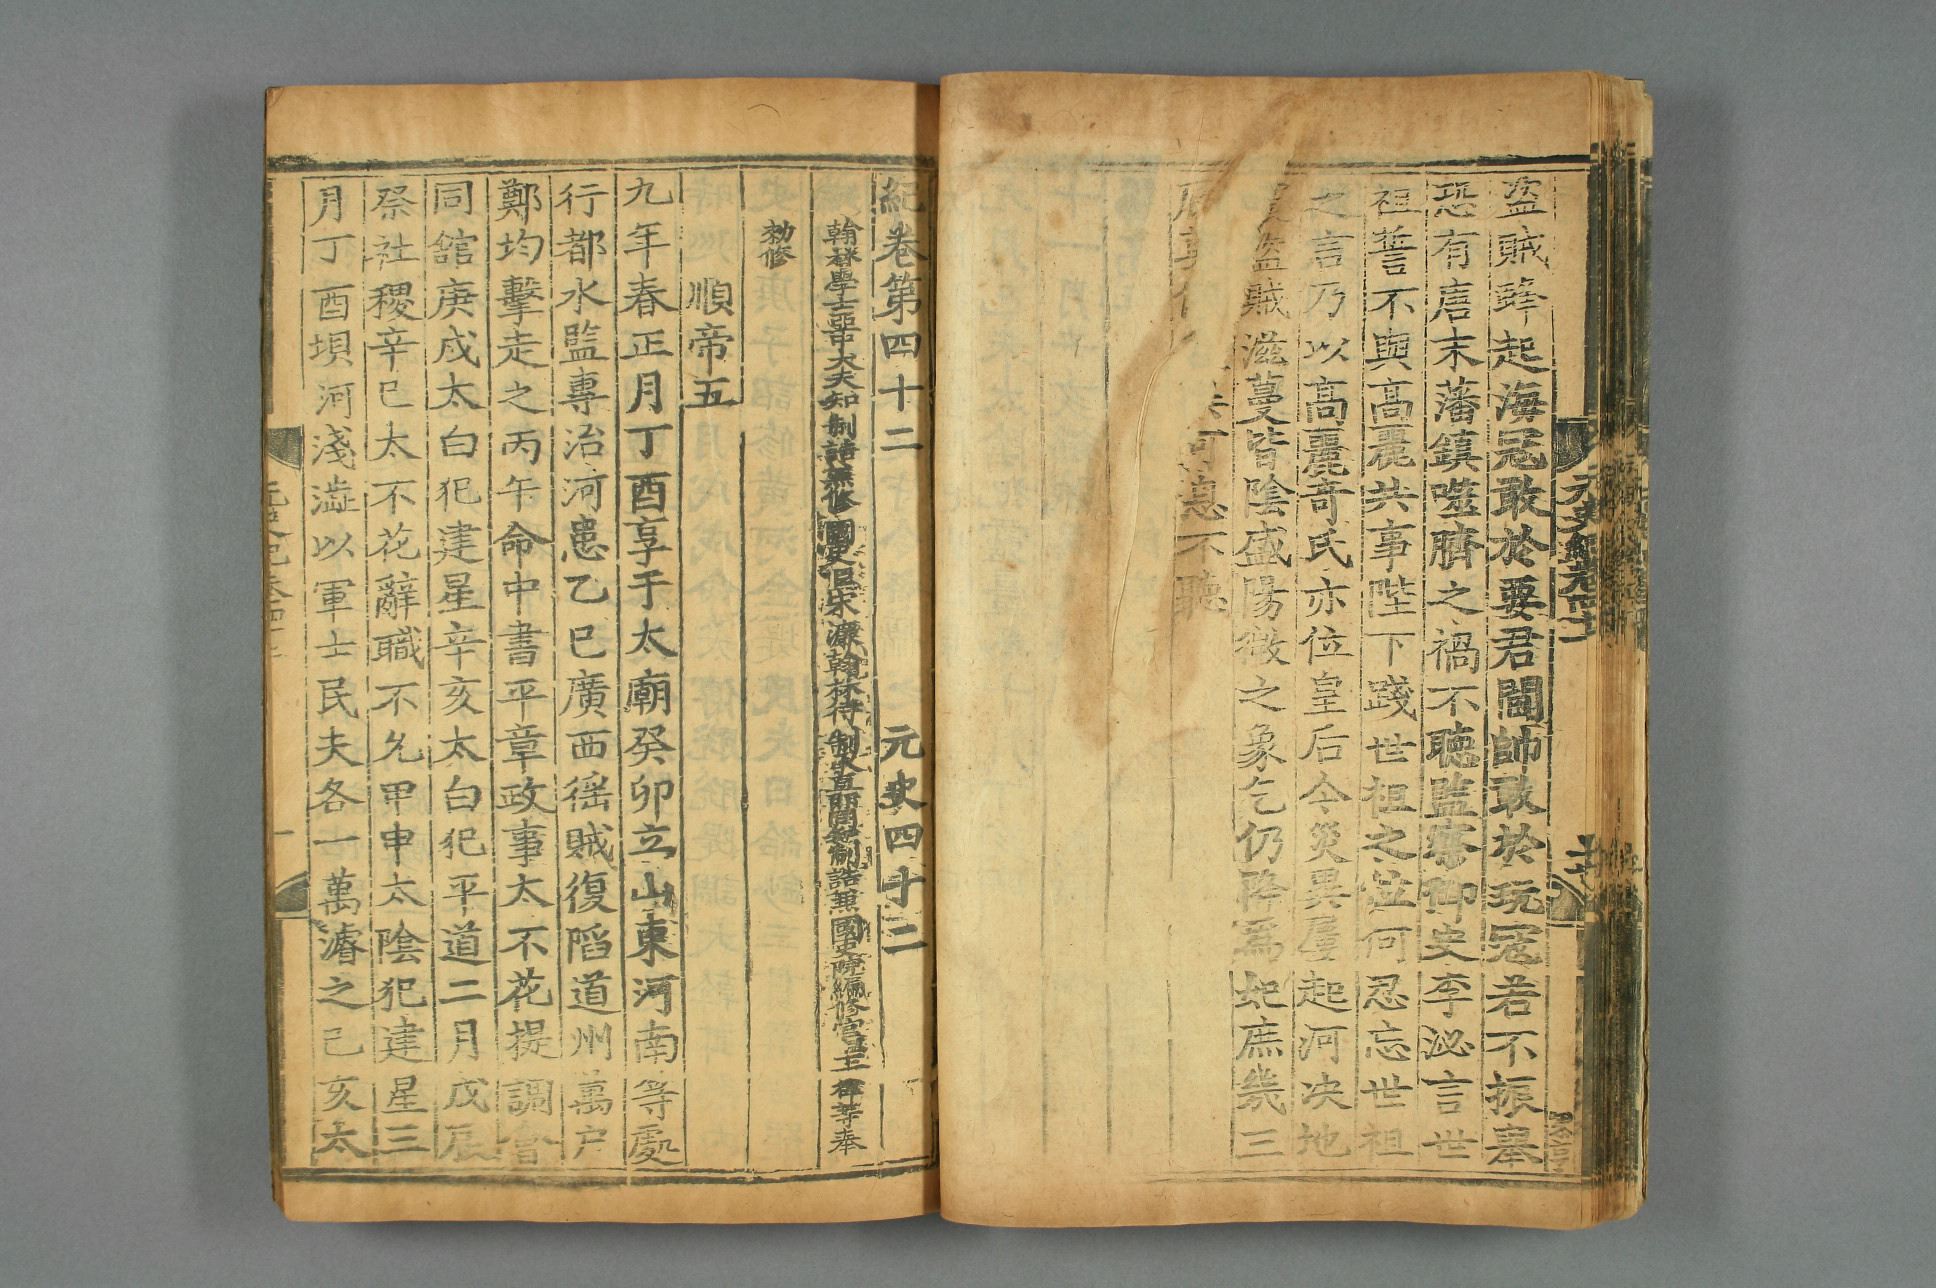 盗賊蜂起海冦敢於要君閫帥敢於玩冦若不振舉
恐有唐末藩鎮噬臍之禍不聽監察御史李泌言世
祖誓不與高麗共事陛下踐世祖之位何忍忘世祖
之言乃以高麗竒氏亦位皇后今災異屢起河决地
盗賊滋蔓皆隂盛陽微之象乞仍降爲妃庶幾三
可息不聽
紀卷第四十二 元史四十二
翰林學士亞中大夫知制誥兼修國史臣宋濂翰林待制承直郎同知制誥兼國史院編修官臣王褘等奉
勑修
順帝五
九年春正月丁酉享于太廟癸卯立山東河南等處
行都水監專治河患乙巳廣西徭賊復陷道州萬户
鄭均擊走之丙午命中書平章政事太不花提調會
同舘庚戍太白犯建星辛亥太白犯平道二月戊辰
祭社稷辛巳太不花辭職不允甲申太隂犯建星三
月丁酉壩河淺澁以軍士民夫各一萬濬之己亥太